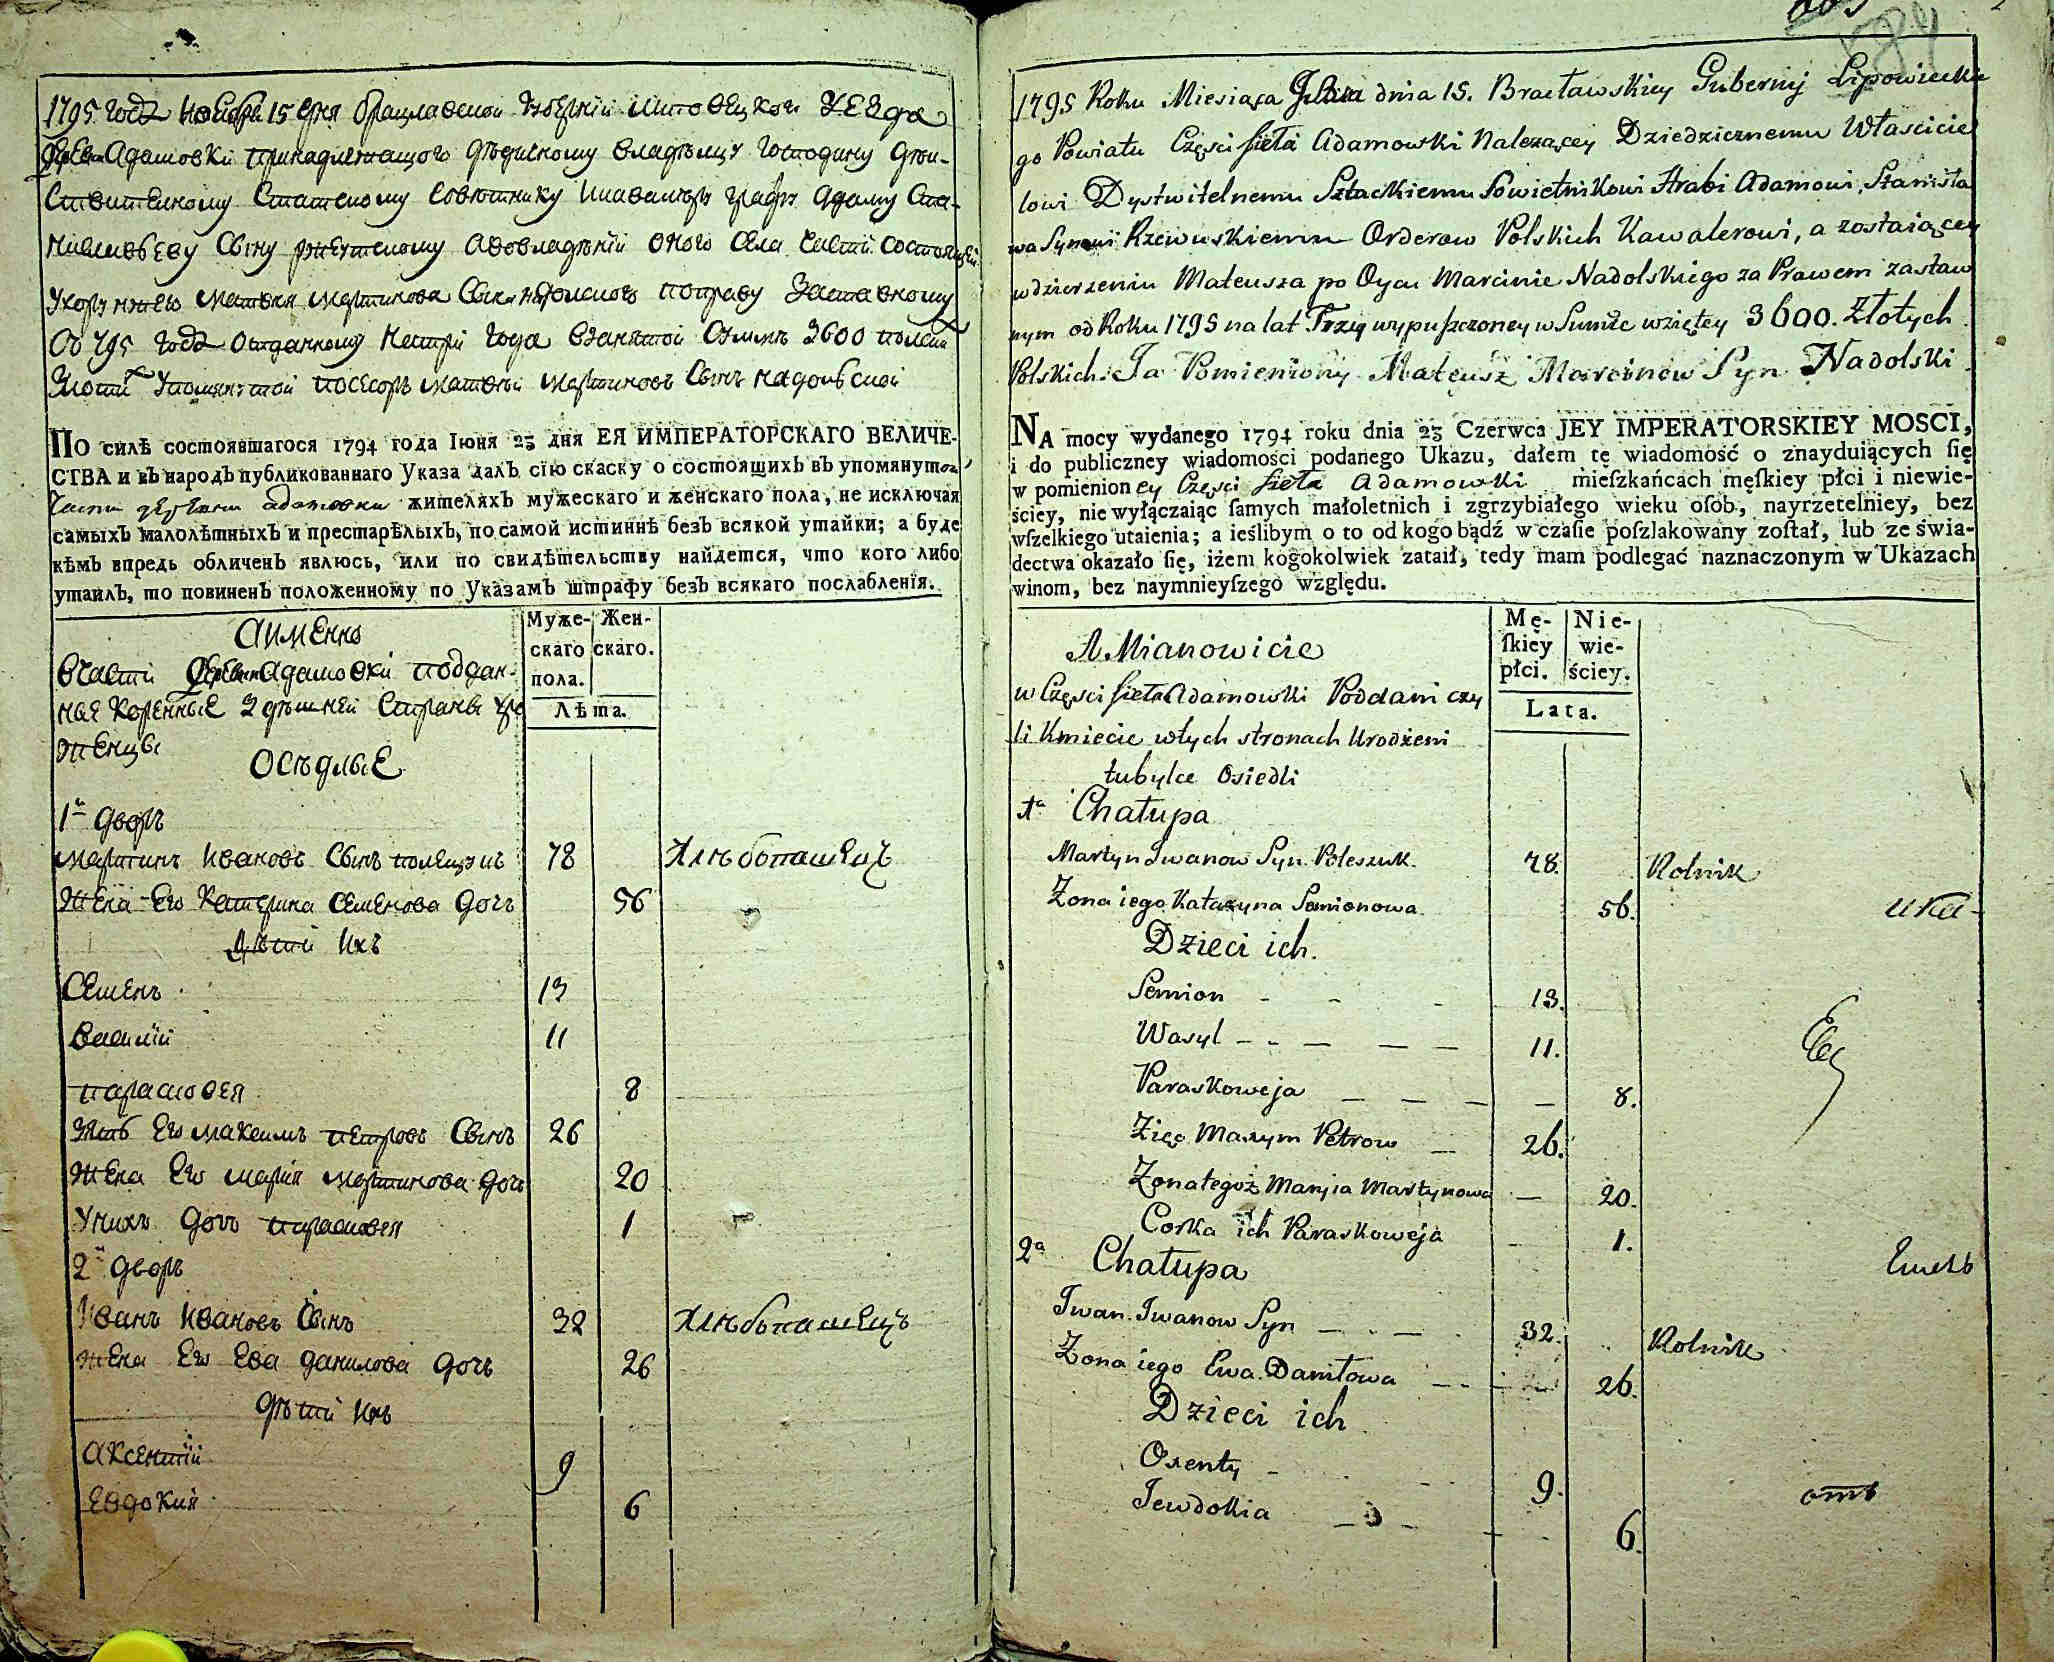 1795 года Ноября 15 дня Брацлавской Губерніи Липовецкого Уезда
Адамовки принадлежащого дѣдичному владѣльцу Господину Дѣй-
ствителному Статскому Совѣтнику Графу Адаму Ста-
Сыну Ржевускому оного села части состоящей
Мартинова Сына по праву Заставному
Съ 795 года отданному на три года взятой Суммѣ 3600
посесоръ Матвѣй Мартиновъ Сынъ Надольской
ПО силѣ состоявшагося 1794 года Іюня 23 дня ЕЯ ИМПЕРАТОРСКАГО ВЕЛИЧЕ-
СТВА и въ народъ публикованнаго Указа далъ сїю скаску о состоящихъ въ упомянутой
Части деревни адамовки жителяхъ мужескаго и женскаго пола, не исключая
самыхъ малолѣтныхъ и престарѣлыхъ, по самой истиннѣ безъ всякой утайки; а буде
кѣмъ впредь обличенъ явлюсь, или по свидѣтельству найдется, что кого либо
утаилъ, то повиненъ положенному по Указамъ штрафу безъ всякаго послабленїя.
Муже-
скаго
пола.
Жен-
скаго.
Лѣта.
Аименно
Вчасти деревни Адамовки поддан-
ные коренные здѣшней Стараны уро
женцы
Осѣдлые
1й дворъ
Мартинъ Ивановъ Сынъ Полещукъ 78 Хлѣбопашецъ
Жена Его Катерина Семенова Дочь 56
Дѣти Ихъ
Семенъ 13
Василій 11
Парасковея 8
Зять Его Максимъ Петровъ Сынъ 26
Жена Его Марія Мартинова Дочь 20
Унихъ Дочь Парасковея 1
2й дворъ
Иванъ Ивановъ Сынъ 32 Хлѣбопашецъ
Жена Его Ева Данилова Дочь 26
Дѣти Ихъ
Аксентій 9
Евдокия 6
1795 Roku Miesiąca dnia 15. Bracławskiey Gubernij Lipowieckie
go Powiatu Częsci sieła Adamowski Nalezącey Dziedzicznemu Włascicie
lowi Dystwitelnemu Sztackiemu Sowietnikowi Hrabi Adamowi, Stanisła
wa Synowi Rzewuskiemu Orderow Polskich Kawalerowi, a zostaiącey
w dzierzeniu Mateusza po Oycu Marcinie Nadolskiego za Prawem zastaw
nym od Roku 1795 na lat Trzy wypuszczoney w Summie wziętey 3600. Złotych
Polskich. Ja Pomieniony Mateusz Marcinow Syn Nadolski
NA mocy wydanego 1794 roku dnia 23 Czerwca JEY IMPERATORSKIEY MOSCI,
i do publiczney wiadomości podanego Ukazu, dałem tę wiadomość o znayduiących ſię
w pomienioney Częsci sieła Adamowski mieſzkańcach męſkiey płci i niewie-
ściey, nie wyłączaiąc ſamych małoletnich i zgrzybiałego wieku oſob, nayrzetelniey, bez
wſzelkiego utaienia; a ieślibym o to od kogo bądź w czaſie poſzlakowany zoſtał, lub ze świa-
dectwa okazało ſię, iżem kogokolwiek zataił, tedy mam podlegać naznaczonym w Ukazach
winom, bez naymnieyſzego względu.
Mę-
ſkiey
płci.
Nie-
wie-
ściey.
Lata.
A Mianowicie
w Częsci sieła Adamowski Poddani czy
li Kmiecie wtych stronach Urodzeni
tubylce Osiedli
1a Chałupa
Martyn Iwanow Syn Poleszuk. 78. Rolnik
Zona iego Katarzyna Semionowa 56.
Dzieci ich.
Semion 13.
Wasyl 11.
Paraskoweja 8.
Zięc Maxym Petrow 26.
Zona tegoż Maryia Martynowa 20.
Corka ich Paraskoweja 1.
2a Chałupa
Iwan Iwanow Syn 32. Rolnik
Zona iego Ewa Daniłowa 26.
Dzieci ich
Oxenty 9.
Jewdokia 6.
отъ